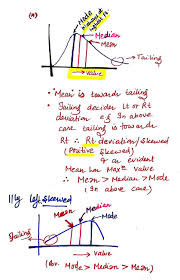 (a)
Mode
Median
Mean
Tailing
→ Value
• Mean is towards tailing
• Tailing decides Lt or Rt
deviation eg In above
case tailing is towards
Rt ∴ Rt deviation/skewed
(Positive skewed)
& as evident
Mean has Max^m value
∴ Mean > Median > Mode
(In above case)
|||ly Left skewed
Mean
Median
Mode
Tailing
→ Value
Mode > Median > Mean)